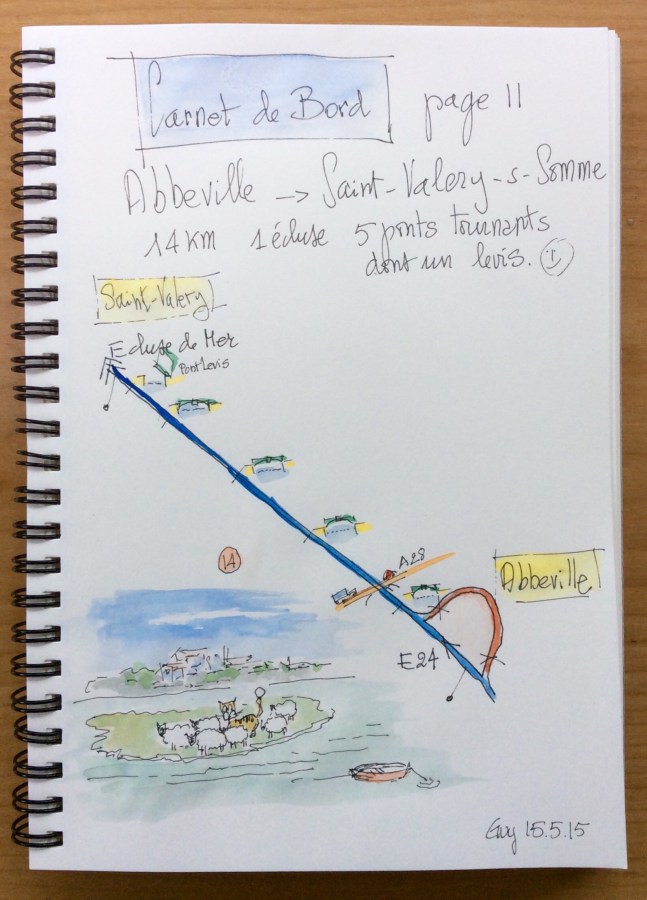 Carnet de Bord page 11
Abbeville → Saint-Valery-s-Somme
14 km 1 écluse 5 ponts tournants
dont un levis.
Saint-Valery
Ecluse de Mer
Pont Levis
14
A28
Abbeville
E24
Guy 15.5.15